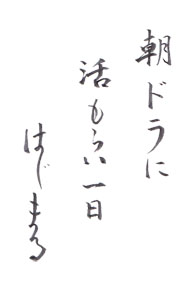 朝ドラに
活もらい一日
はじまる